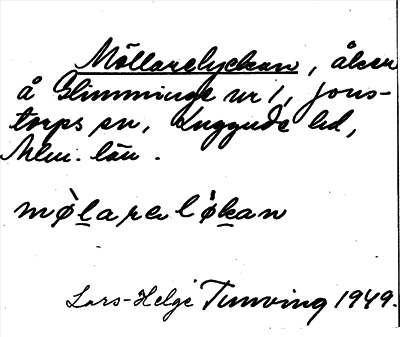 Möllarelyckan, åker
å Glimminge nr 1, Jons-
torps sn, Luggude hd,
Mlm. län.
mø̀larelø̀kan
Lars-Helge Tunving 1949.